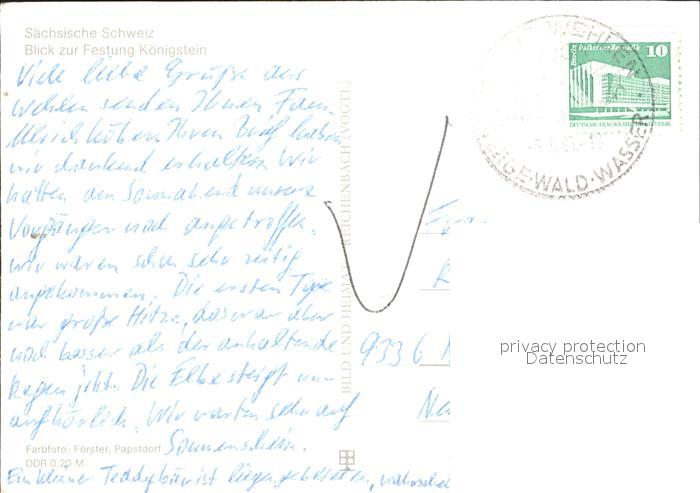 Sächsische Schweiz
Blick zur Festung Königstein
Viele liebe Grüße aus
Wehlen senden Ihnen Fam.
Ihren Brief haben
wir dankend erhalten. Wir
hatten den Sonnabend unsere
Vorgänger noch angetroffen,
wir waren schon sehr zeitig
angekommen. Die ersten Tage
war große Hitze, das war aber
noch besser als der anhaltende
Regen jetzt. Die Elbe steigt un-
aufhörlich. Wir warten sehr auf
Sonnenschein.
Farbfoto: Förster, Papstdorf
DDR 0,20 M
Ein kleiner Teddybär ist liegen geblieben,
BILD UND HEIMAT REICHENBACH (VOGTL)
Berlin Palast der Republik
10
DEUTSCHE DEMOKRATISCHE REPUBLIK
WEHLEN
BERGE·WALD·WASSER
933 6
privacy protection
Datenschutz